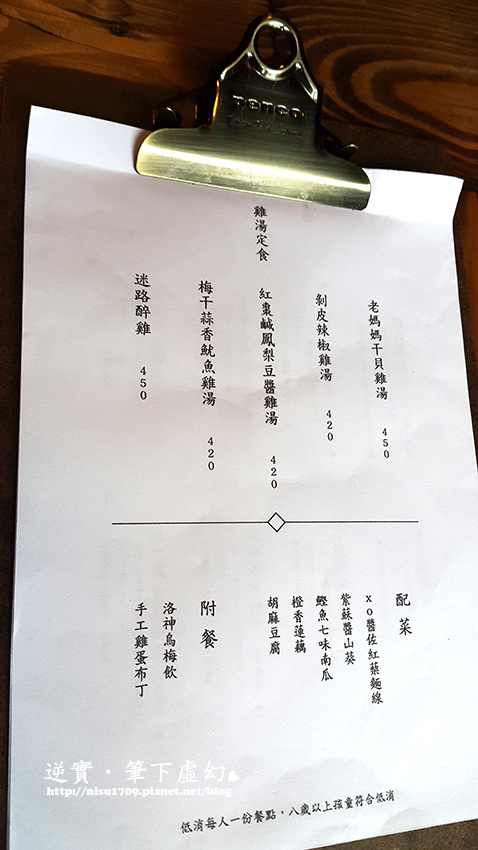 雞湯定食
老媽媽干貝雞湯 450
剝皮辣椒雞湯 420
紅棗鹹鳳梨豆醬雞湯 420
梅干蒜香魷魚雞湯 420
迷路醉雞 450
配菜
xo醬佐紅蔾麵線
紫蘇醬山葵
鰹魚七味南瓜
橙香蓮藕
胡麻豆腐
附餐
洛神烏梅飲
手工雞蛋布丁
低消每人一份餐點，八歲以上孩童符合低消
逆實·筆下虛幻
http://nisu1709.pixnet.net/blog